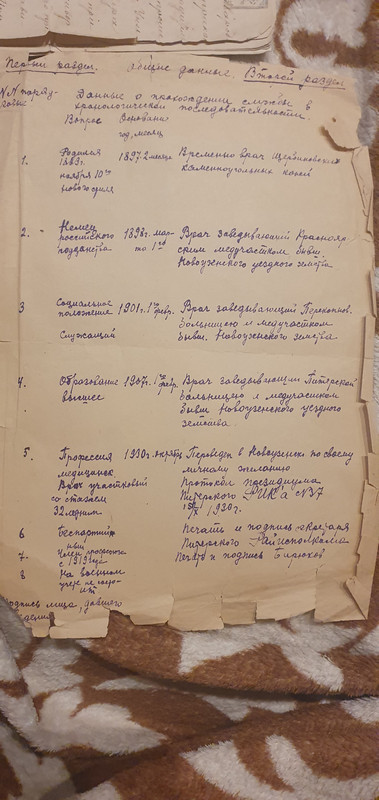 Первый раздел. Общие данные. Второй раздел
№№ поряд- Данные о прохождении службы в
ковые хронологической последовательности.
Вопрос Основание
год, месяц
1. Родился 1897. 2 месяца Временно врач Щербиновских
1863г. каменноугольных копей
ноября 10го
нового стиля
2. Немец 1898г. мар- Врач заведывающий Краснояр-
российского та 1го ским медучастком бывш.
подданства Новоузенского уездного земства
3 Социальное 1901г. 1го февр. Врач заведывающий
положение больницею и медучастком
Служащий бывш. Новоузенского земства.
4. Образование 1907г. 1го февр. Врач заведывающий Питерской
высшее больницею и медучастком
бывш Новоузенского уездного
земства.
5. Профессия 1930г. октябрь Переведен в Новоузенск по своему
медицинск. личному желанию
Врач участковый Протокол президиума
со стажем Питерского РИКа №37
32 летним 1930г.
6 Беспартийн Печать и подпись секретаря
7. член профсоюза Питерского Райисполкома
с 1919 года Печать и подпись Бирюков
8 На военном
учете не состо-
ит
подпись лица, давшего
сведения